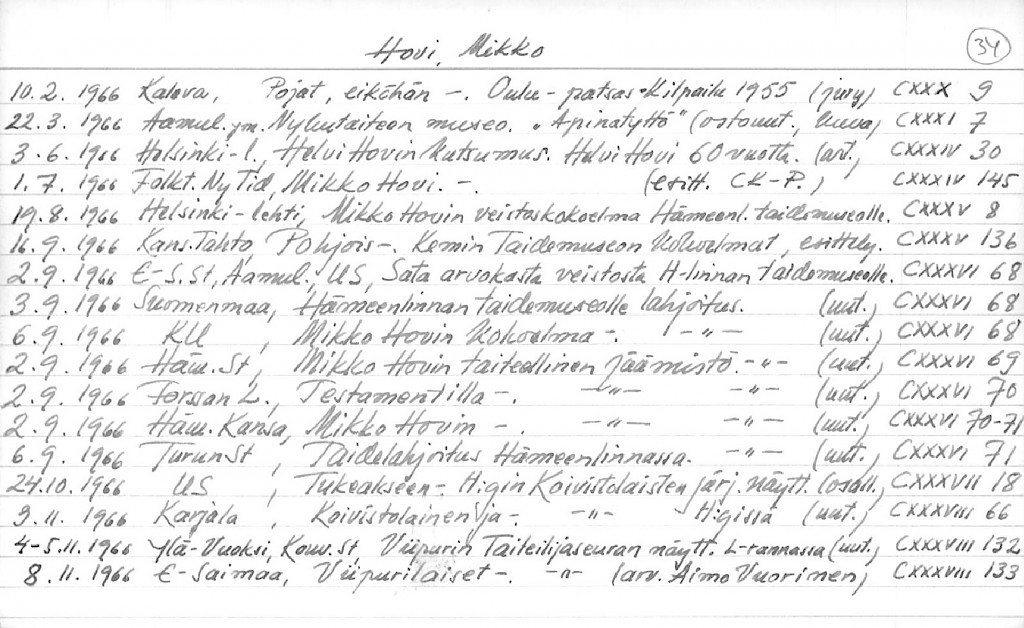 Hovi, Mikko
34
10.2. 1966 Kaleva, Pojat, eiköhän -. Oulu-patsas-Kilpailu 1955 (jury) CXXX 9
22.3. 1966 Aamul. ym. Nykytaiteen museo. "Apinatyttö" (ostouut., kuva) CXXXI 7
3.6. 1966 Helsinki-l., Helvi Hovin kutsumus. Helvi Hovi 60 vuotta. (art.) CXXXIV 30
1.7. 1966 Folkt. Ny Tid, Mikko Hovi. -. (esitt. CK-P.) CXXXIV 145
19.8. 1966 Helsinki-lehti, Mikko Hovin veistoskokoelma Hämeenl. taidemuseolle. CXXXV 8
16.9. 1966 Kans. Tahto Pohjois-. Kemin Taidemuseon kokoelmat, esittely. CXXXV 136
2.9. 1966 E-S.St, Aamul., US, Sata arvokasta veistosta H-linnan taidemuseolle. CXXXVI 68
3.9. 1966 Suomenmaa, Hämeenlinnan taidemuseolle lahjoitus. (uut.) CXXXVI 68
6.9. 1966 KU, Mikko Hovin kokoelma -. -"- (uut.) CXXXVI 68
2.9. 1966 Häm. St, Mikko Hovin taiteellinen jäämistö. -"- (uut.) CXXXVI 69
2.9. 1966 Forssan L., Testamentilla -. -"- -"- (uut.) CXXXVI 70
2.9. 1966 Häm. Kansa, Mikko Hovin -. -"- -"- (uut.) CXXXVI 70-71
6.9. 1966 Turun St, Taidelahjoitus Hämeenlinnassa. -"- (uut.) CXXXVI 71
24.10. 1966 US, Tukeakseen -. H:gin Koivistolaisten järj. näytt. (osall.) CXXXVII 18
9.11. 1966 Karjala, Koivistolainen ja -. -"- H:gissä (uut.) CXXXVIII 66
4-5.11. 1966 Ylä-Vuoksi, Kouv. St, Viipurin Taiteilijaseuran näytt. L-rannassa (uut.) CXXXVIII 132
8.11. 1966 E-Saimaa, Viipurilaiset -. -"- (arv. Aimo Vuorinen) CXXXVIII 133